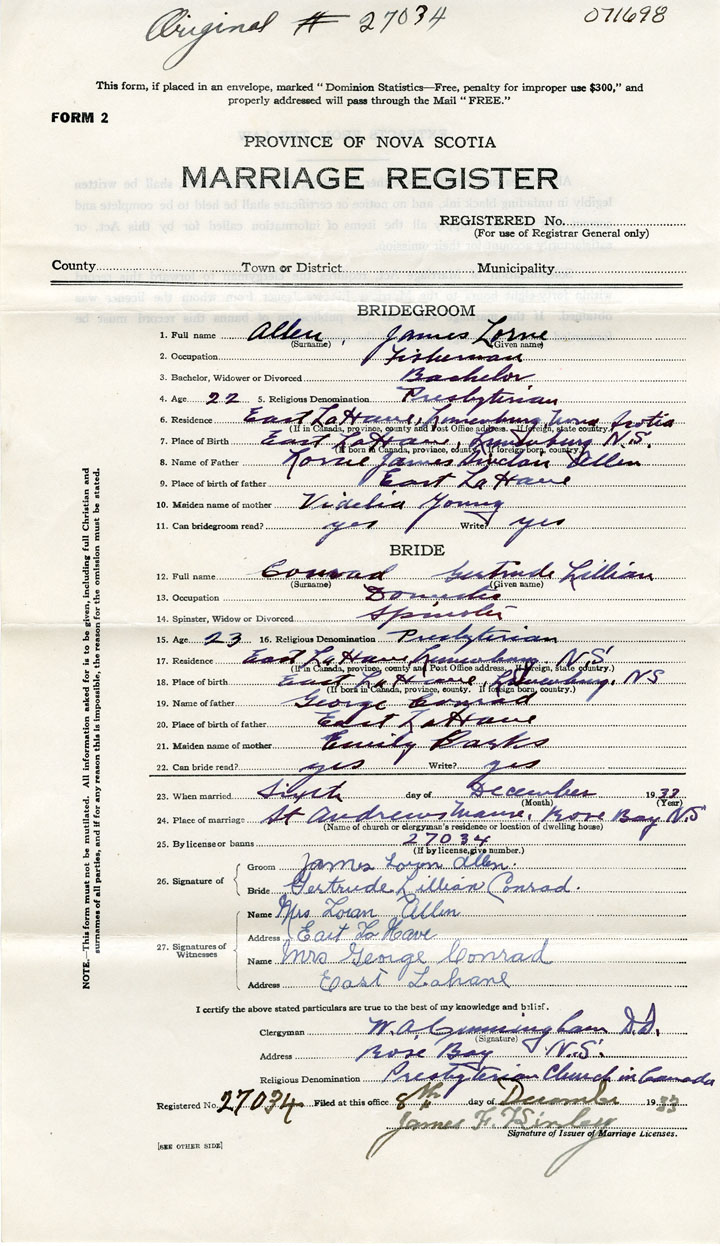 Original # 27034
071698
This form, if placed in an envelope, marked “Dominion Statistics—Free, penalty for improper use $300,” and
properly addressed will pass through the Mail “FREE.”
FORM 2
PROVINCE OF NOVA SCOTIA
MARRIAGE REGISTER
REGISTERED No.
(For use of Registrar General only)
County Town or District Municipality
BRIDEGROOM
1. Full name Allen, James Lorne
(Surname) (Given name)
2. Occupation Fisherman
3. Bachelor, Widower or Divorced Bachelor
4. Age 22 5. Religious Denomination Presbyterian
6. Residence East LaHave, Lunenburg, Nova Scotia
(If in Canada, province, county and Post Office address. If foreign, state country.)
7. Place of Birth East LaHave, Lunenburg N.S.
(If born in Canada, province, county. If foreign born, country.)
8. Name of Father James Allen
9. Place of birth of father East LaHave
10. Maiden name of mother Videlia Young
11. Can bridegroom read? yes Write? yes
BRIDE
12. Full name Conrad Gertrude Lillian
(Surname) (Given name)
13. Occupation Domestic
14. Spinster, Widow or Divorced Spinster
15. Age 23 16. Religious Denomination Presbyterian
17. Residence East LaHave, Lunenburg, N.S.
(If in Canada, province, county and Post Office address. If foreign, state country.)
18. Place of birth East LaHave, Lunenburg, NS
(If born in Canada, province, county. If foreign born, country.)
19. Name of father George Conrad
20. Place of birth of father East LaHave
21. Maiden name of mother Emily Parks
22. Can bride read? yes Write? yes
23. When married Sixth day of December 1933
(Month) (Year)
24. Place of marriage St Andrews Manse, Rose Bay N.S
(Name of church or clergyman's residence or location of dwelling house)
25. By license or banns 27034
(If by license, give number.)
26. Signature of
Groom James Loran Allen.
Bride Gertrude Lillian Conrad.
27. Signatures of Witnesses
Name Mrs Loran Allen
Address East La Have
Name Mrs George Conrad
Address East Lahave
I certify the above stated particulars are true to the best of my knowledge and belief.
Clergyman W. A. Cunningham D.D.
(Signature)
Address Rose Bay N.S.
Religious Denomination Presbyterian Church in Canada
Registered No. 27034 Filed at this office 8th day of December 1933
James F.
Signature of Issuer of Marriage Licenses.
[SEE OTHER SIDE]
NOTE.—This form must not be mutilated. All information asked for is to be given, including full Christian and
surnames of all parties, and if for any reason this is impossible, the reason for the omission must be stated.